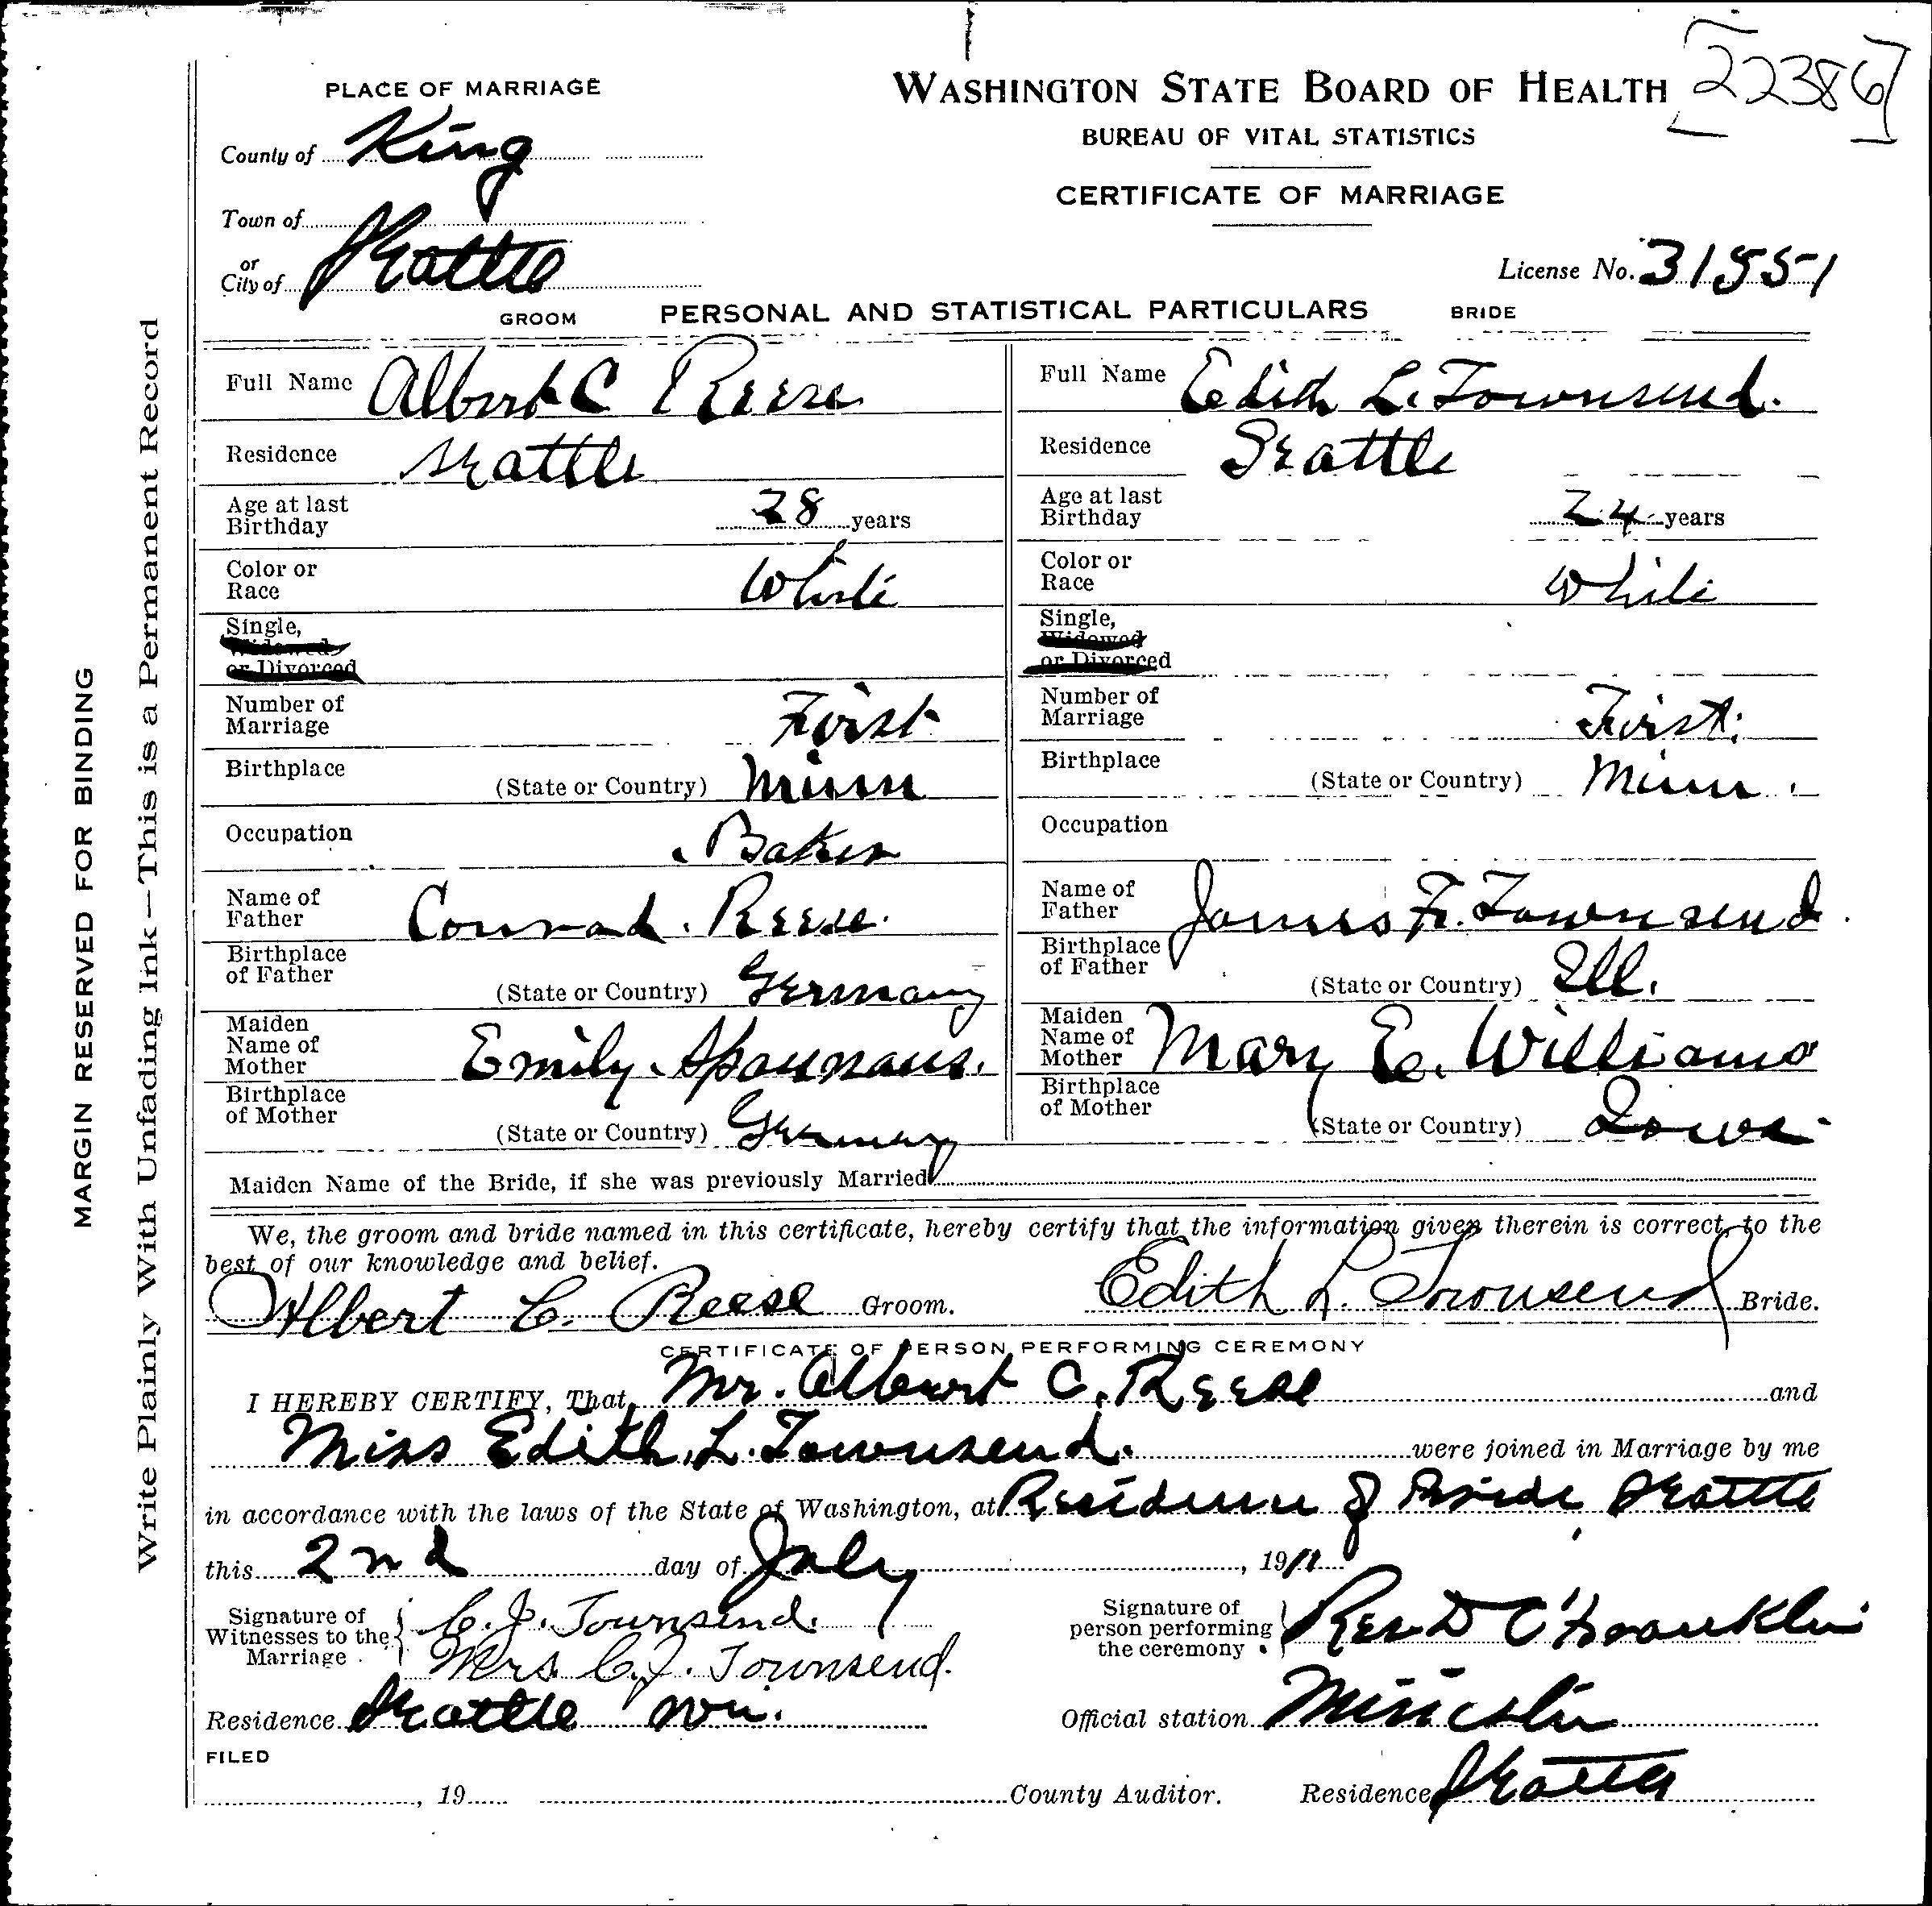 PLACE OF MARRIAGE
County of King
Town of
or
City of Seattle
WASHINGTON STATE BOARD OF HEALTH [22386]
BUREAU OF VITAL STATISTICS
CERTIFICATE OF MARRIAGE
License No. 31551
GROOM PERSONAL AND STATISTICAL PARTICULARS BRIDE
Full Name Albert C Reese
Residence Seattle
Age at last
Birthday 28 years
Color or
Race White
Single,
Widowed
or Divorced
Number of
Marriage First
Birthplace
(State or Country) Minn
Occupation Baker
Name of
Father Conrad Reese
Birthplace
of Father
(State or Country) Germany
Maiden
Name of
Mother Emily
Birthplace
of Mother
(State or Country) Germany
Full Name Edith L. Townsend.
Residence Seattle
Age at last
Birthday 24 years
Color or
Race White
Single,
Widowed
or Divorced
Number of
Marriage First.
Birthplace
(State or Country) Minn.
Occupation
Name of
Father James F. Townsend.
Birthplace
of Father
(State or Country) Ill.
Maiden
Name of
Mother Mary E. Williams
Birthplace
of Mother
(State or Country) Iowa
Maiden Name of the Bride, if she was previously Married
We, the groom and bride named in this certificate, hereby certify that the information given therein is correct, to the
best of our knowledge and belief.
Albert C. Reese Groom. Edith L. Townsend Bride.
CERTIFICATE OF PERSON PERFORMING CEREMONY
I HEREBY CERTIFY, That Mr. Albert C. Reese and
Miss Edith L. Townsend. were joined in Marriage by me
in accordance with the laws of the State of Washington, at Residence of Bride Seattle
this 2nd day of July, 1911
Signature of
Witnesses to the
Marriage
C. J. Townsend.
Mrs. C. J. Townsend.
Residence Seattle Wn.
Signature of
person performing
the ceremony
Rev D C Franklin
Official station Minister
FILED
, 19 County Auditor. Residence Seattle
MARGIN RESERVED FOR BINDING
Write Plainly With Unfading Ink—This is a Permanent Record